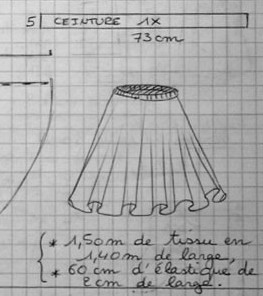 5 CEINTURE 1X
73 cm
* 1,50m de tissu en
1,40m de large,
* 60 cm d'élastique de
2 cm de large.